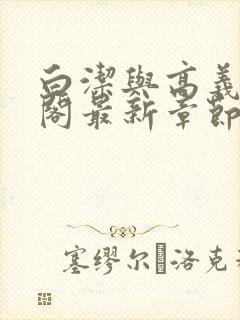 白潔與高義
閣最新章節
塞缪尔·洛克